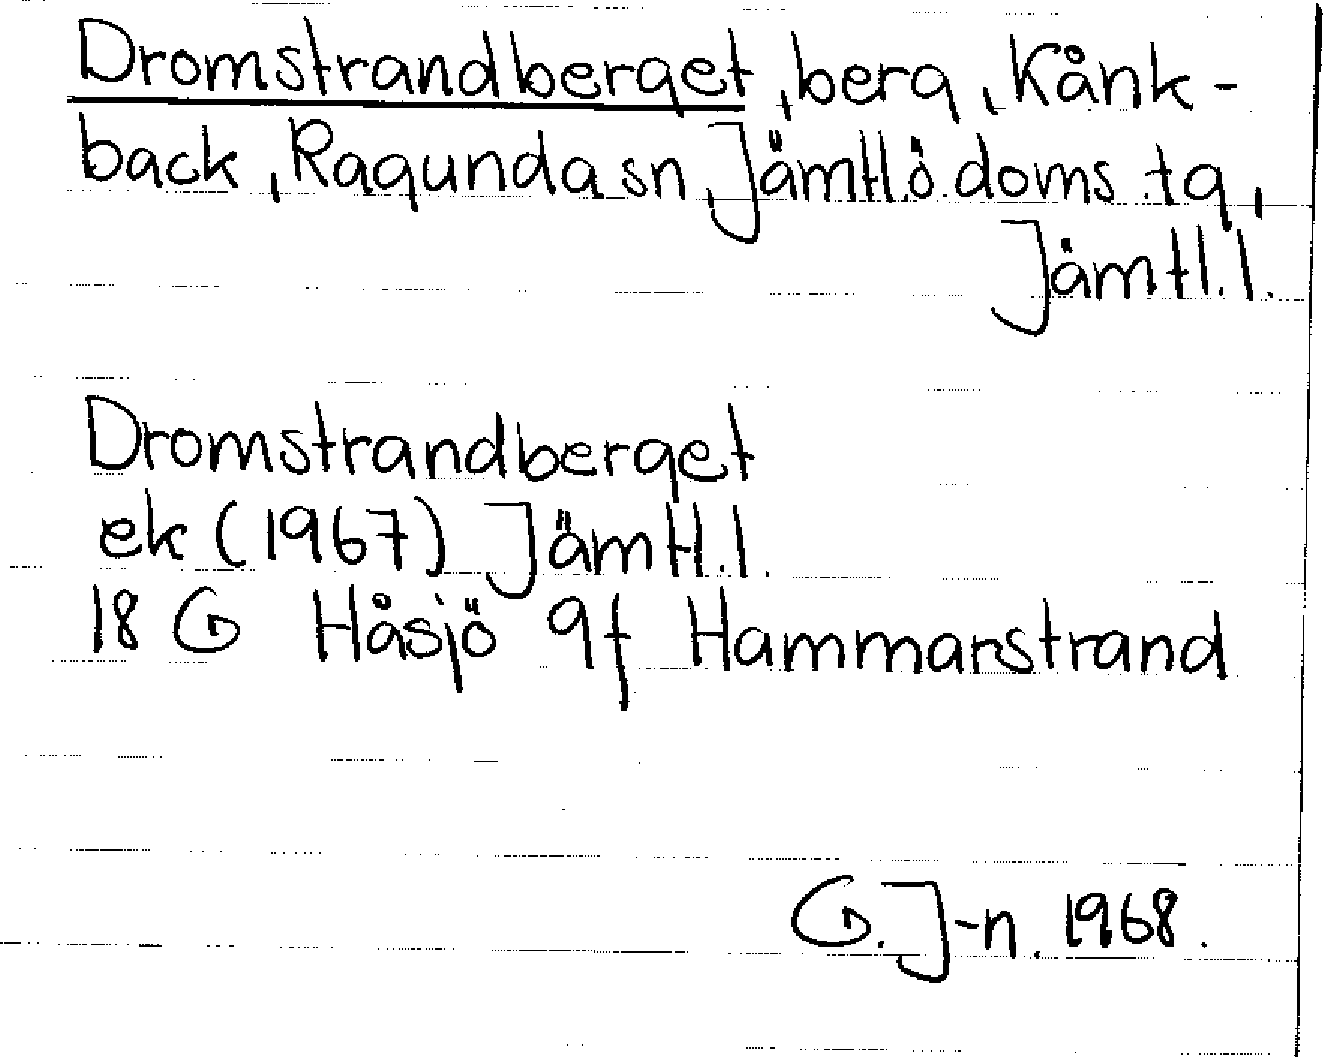 Dromstrandberget, berg, Kånk-
back, Ragunda sn Jämtl.ö.doms.tg,
Jämtl.l.
Dromstrandberget
ek (1967) Jämtl.l.
18 G Håsjö 9f Hammarstrand
G.J-n. 1968.